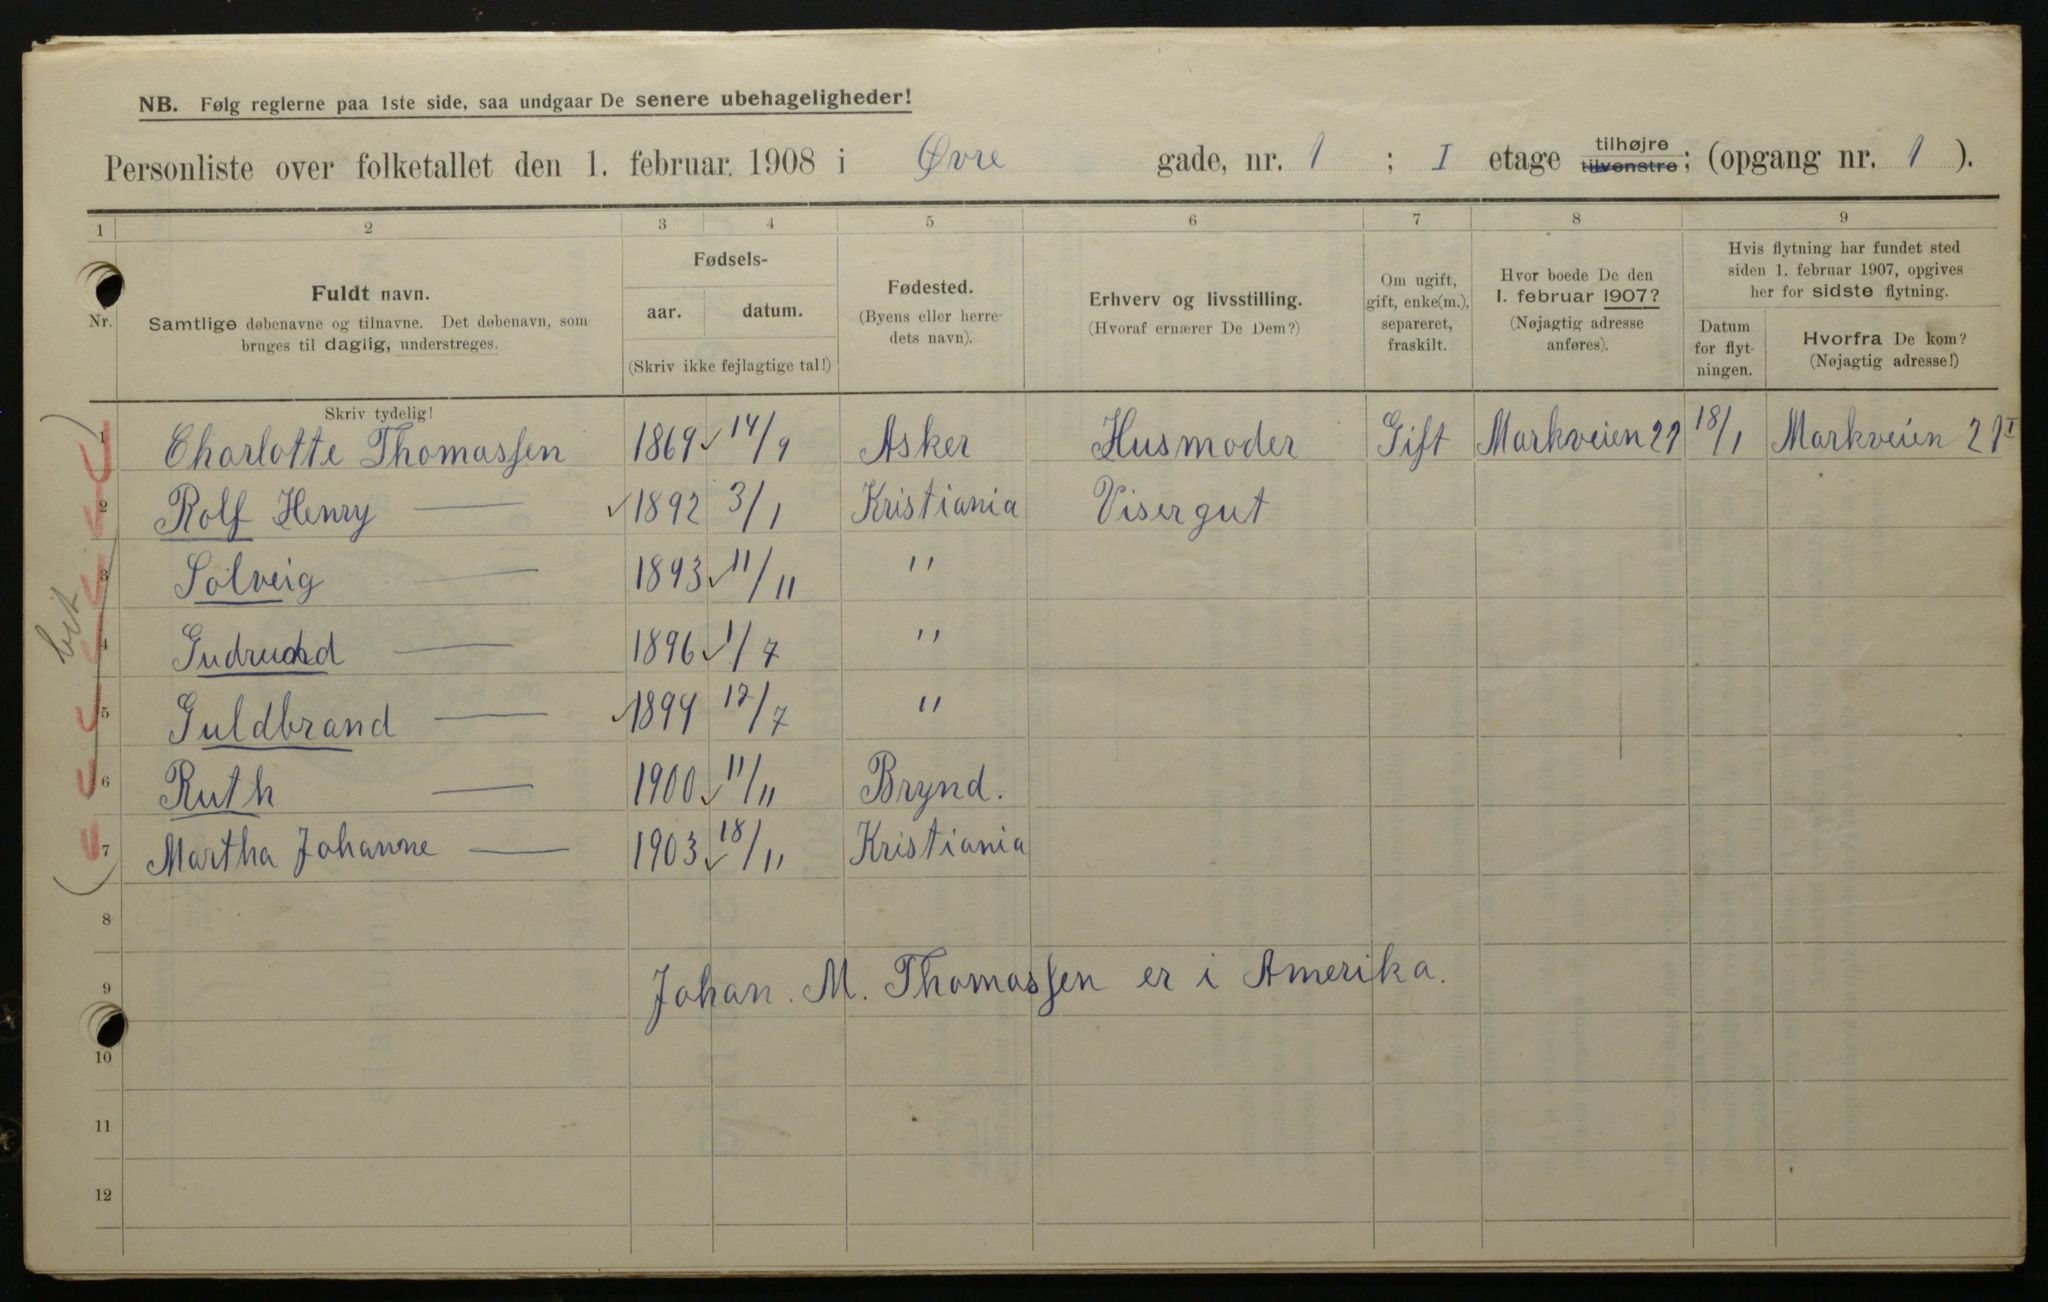 NB. Følg reglerne paa 1ste side, saa undgaar De senere ubehageligheder!
Personliste over folketallet den 1. februar 1908 i Øvre gade, nr. 1 ; I etage tilhøjre tilvenstre; (opgang nr. 1 ).
1 2 3 4 5 6 7 8 9
Nr.
Fuldt navn.
Samtlige døbenavne og tilnavne. Det døbenavn, som
bruges til daglig, understreges.
Fødsels-
aar. datum.
(Skriv ikke fejlagtige tal!)
Fødested.
(Byens eller herre-
dets navn).
Erhverv og livsstilling.
(Hvoraf ernærer De Dem?)
Om ugift,
gift, enke(m.),
separeret,
fraskilt.
Hvor boede De den
1. februar 1907?
(Nøjagtig adresse
anføres).
Hvis flytning har fundet sted
siden 1. februar 1907, opgives
her for sidste flytning.
Datum
for flyt-
ningen.
Hvorfra De kom?
(Nøjagtig adresse!)
Skriv tydelig!
1 Charlotte Thomassen 1869 14/9 Asker Husmoder Gift Markveien 21 18/1 Markveien 21 I
2 Rolf Henry — 1892 3/1 Kristiania Visergut
3 Solveig — 1893 11/11 "
4 — 1896 1/7 "
5 Guldbrand — 1899 17/7 "
6 Ruth — 1900 11/11 Brynd.
7 Martha Johanne — 1903 18/11 Kristiania
8
9 Johan. M. Thomassen er i Amerika.
10
11
12